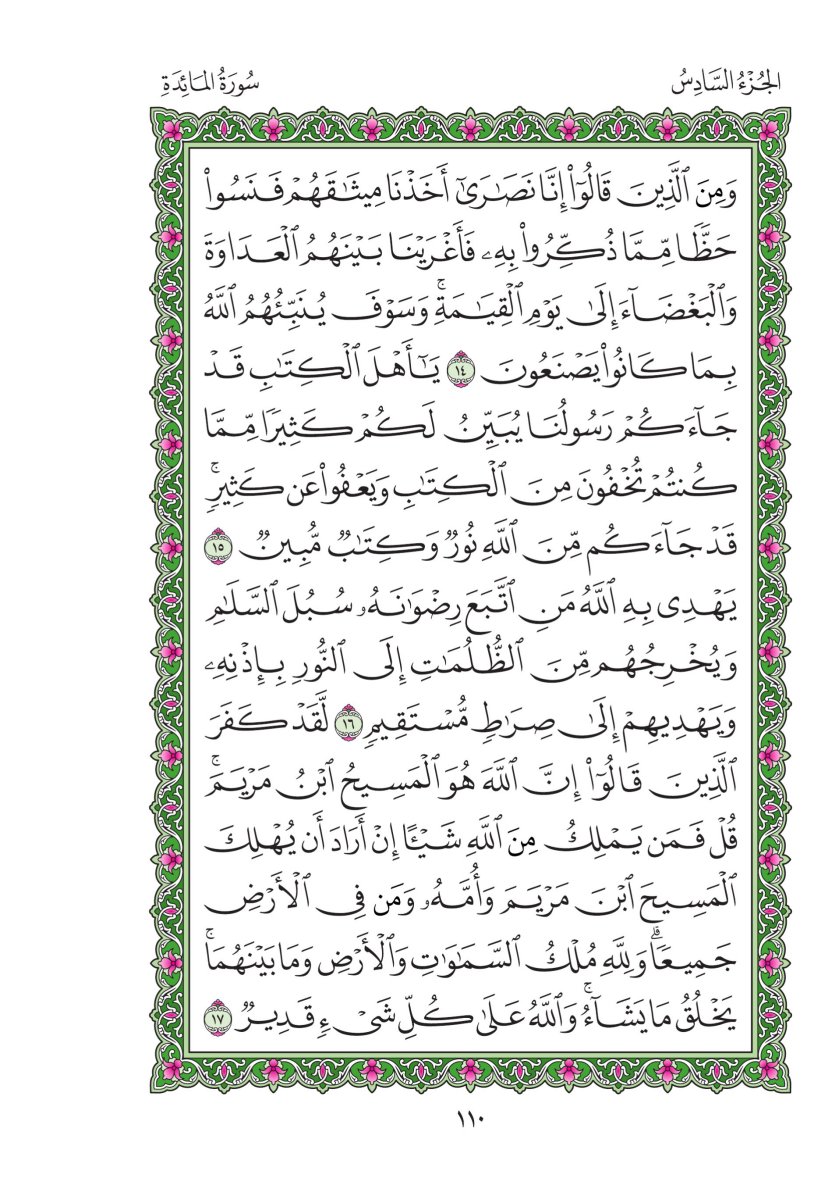 الجُزْءُ السَّادِسُ
سُورَةُ المَائِدَةِ
وَمِنَ ٱلَّذِينَ قَالُوٓاْ إِنَّا نَصَٰرَىٰٓ أَخَذۡنَا مِيثَٰقَهُمۡ فَنَسُواْ
حَظّٗا مِّمَّا ذُكِّرُواْ بِهِۦ فَأَغۡرَيۡنَا بَيۡنَهُمُ ٱلۡعَدَاوَةَ
وَٱلۡبَغۡضَآءَ إِلَىٰ يَوۡمِ ٱلۡقِيَٰمَةِۚ وَسَوۡفَ يُنَبِّئُهُمُ ٱللَّهُ
بِمَا كَانُواْ يَصۡنَعُونَ ١٤ يَٰٓأَهۡلَ ٱلۡكِتَٰبِ قَدۡ
جَآءَكُمۡ رَسُولُنَا يُبَيِّنُ لَكُمۡ كَثِيرٗا مِّمَّا
كُنتُمۡ تُخۡفُونَ مِنَ ٱلۡكِتَٰبِ وَيَعۡفُواْ عَن كَثِيرٖۚ
قَدۡ جَآءَكُم مِّنَ ٱللَّهِ نُورٞ وَكِتَٰبٞ مُّبِينٞ ١٥
يَهۡدِي بِهِ ٱللَّهُ مَنِ ٱتَّبَعَ رِضۡوَٰنَهُۥ سُبُلَ ٱلسَّلَٰمِ
وَيُخۡرِجُهُم مِّنَ ٱلظُّلُمَٰتِ إِلَى ٱلنُّورِ بِإِذۡنِهِۦ
وَيَهۡدِيهِمۡ إِلَىٰ صِرَٰطٖ مُّسۡتَقِيمٖ ١٦ لَّقَدۡ كَفَرَ
ٱلَّذِينَ قَالُوٓاْ إِنَّ ٱللَّهَ هُوَ ٱلۡمَسِيحُ ٱبۡنُ مَرۡيَمَۚ
قُلۡ فَمَن يَمۡلِكُ مِنَ ٱللَّهِ شَيۡـًٔا إِنۡ أَرَادَ أَن يُهۡلِكَ
ٱلۡمَسِيحَ ٱبۡنَ مَرۡيَمَ وَأُمَّهُۥ وَمَن فِي ٱلۡأَرۡضِ
جَمِيعٗاۗ وَلِلَّهِ مُلۡكُ ٱلسَّمَٰوَٰتِ وَٱلۡأَرۡضِ وَمَا بَيۡنَهُمَاۚ
يَخۡلُقُ مَا يَشَآءُۚ وَٱللَّهُ عَلَىٰ كُلِّ شَيۡءٖ قَدِيرٞ ١٧
١١٠